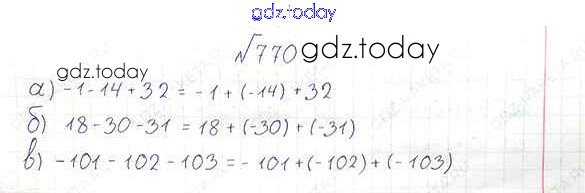 gdz.today
√770 gdz.today
gdz.today
а) -1-14+32 = -1+(-14)+32
б) 18-30-31 = 18+(-30)+(-31)
в) -101-102-103 = -101+(-102)+(-103)